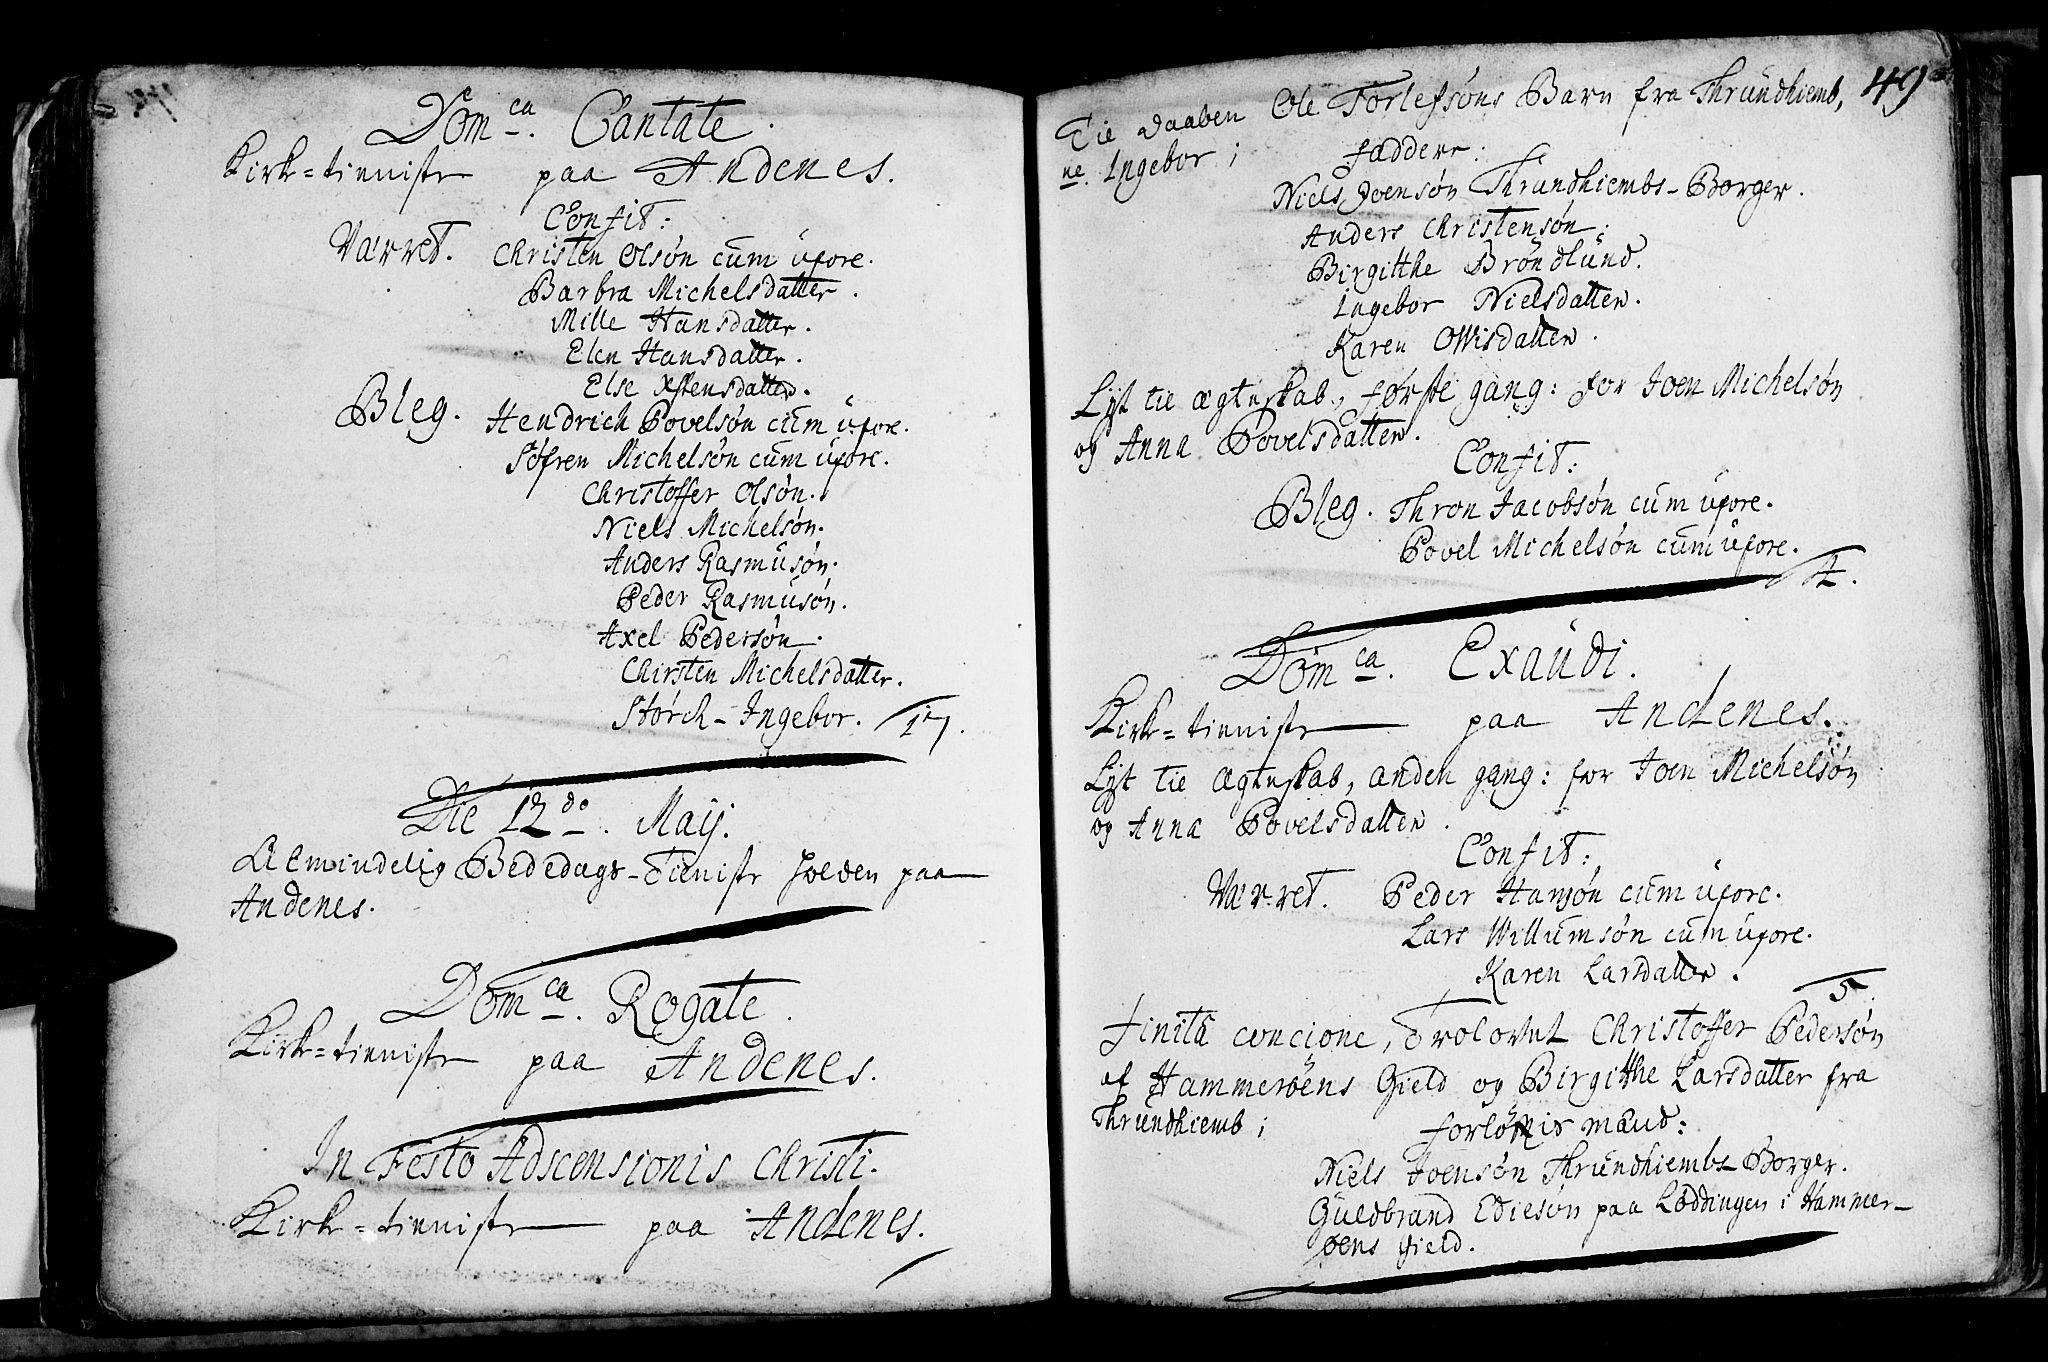 Dom ca. Cantate.
Kirke=tieniste paa Andenes.
Confit:
Værret. Christen Olsøn cum uxore.
Barbra Michelsdatter.
Mille Hansdatter.
Elen Hansdatter.
Else Xstensdatter.
Bleg. Hendrich Povelsøn cum uxore.
Søfren Michelsøn cum uxore.
Christoffer Olsøn.
Niels Michelsøn.
Anders Rasmusøn.
Peder Rasmusøn.
Axel Pedersøn.
Chirsten Michelsdatter.
Storch-Ingebor. 17.
Die 12 do. Maij.
Almindelig Bededags-Tieniste holden paa
Andenes.
Dom ca. Rogate.
Kirke=tieniste paa Andenes.
In Festo Adscensionis Christi.
Kirke=tieniste paa Andenes.
49
Til Daaben Ole Torlefsøns Barn fra Thrundhiemb,
ne. Ingebor;
Faddere:
Niels Joensøn Thrundhiembs-Borger.
Anders Christensøn.
Birgitthe Brøndlund.
Ingebor Nielsdatter.
Karen Ollisdatter.
Lyst til ægteskab, første gang: for Joen Michelsøn
og Anna Povelsdatter.
Confit:
Bleg. Thron Jacobsøn cum uxore.
Povel Michelsøn cum uxore.
4.
Dom ca. Exaudi.
Kirke=tieniste paa Andenes.
Lyst til ægteskab, anden gang: for Joen Michelsøn
og Anna Povelsdatter.
Confit:
Værret. Peder Hansøn cum uxore.
Lars Willumsøn cum uxore.
Karen Larsdatter.
5.
Finita concione, Trolovet Christoffer Pedersøn
af Hammerøens Gield og Birgitthe Larsdatter fra
Thrundhiemb;
Forløfftis mænd:
Niels Joensøn Thrundhiembs Borger.
Guldbrand Edisøn paa Løddingen i Hammer-
øens gield.